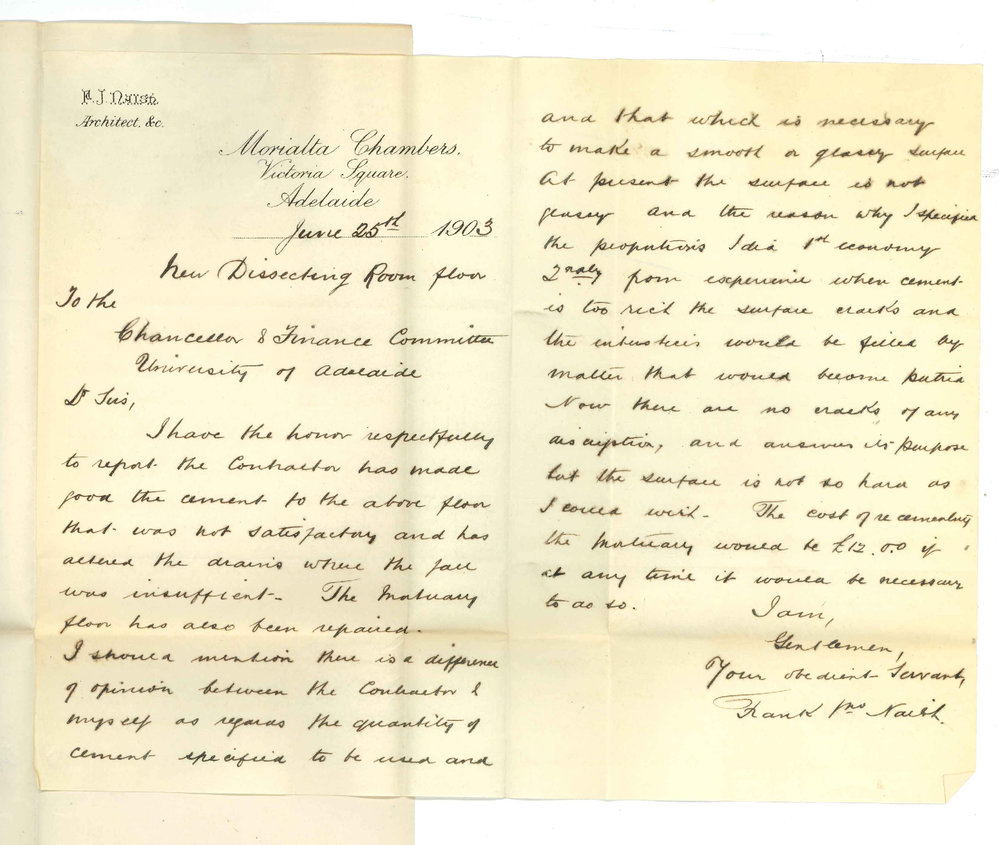 F. J. Naish
Architect, &c.
Morialta Chambers.
Victoria Square.
Adelaide
June 25th 1903
New Dissecting Room floor
To the
Chancellor & Finance Committee
University of Adelaide
Dr Sirs,
I have the honor respectfully
to report the Contractor has made
good the cement to the above floor
that was not satisfactory and has
altered the drains where the fall
was insufficient. The Mortuary
floor has also been repaired.
I should mention there is a difference
of opinion between the Contractor &
myself as regards the quantity of
cement specified to be used and
and that which is necessary
to make a smooth or glassy surface
At present the surface is not
glassy and the reason why I specified
the proportions I did 1st economy
2ndly from experience when cement
is too rich the surface cracks and
the interstices would be filled by
matter that would become putrid
Now there are no cracks of any
discription, and answers its purpose
but the surface is not so hard as
I could wish. The cost of recementing
the Mortuary would be £12.0.0 if
at any time it would be necessary
to do so.
I am,
Gentlemen,
Your obedient Servant,
Frank Jno Naish.